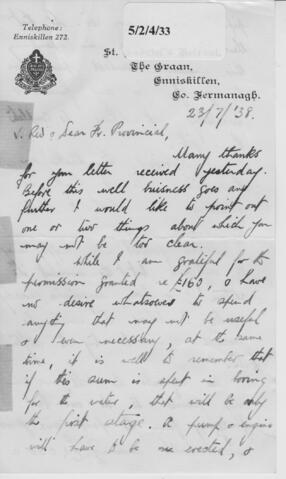 Telephone:
Enniskillen 272.
5/2/4/33
St.
The Graan,
Enniskillen,
Co. Fermanagh.
23/7/38.
V. Rev & Dear Fr. Provincial,
Many thanks
for your letter received yesterday.
Before this well buisness goes any
further I would like to point out
one or two things about which you
may not be too clear.
While I am grateful for the
permission granted re £160, & have
no desire whatsoever to spend
anything that may not be useful
& even necessary, at the same
time, it is well to remember that
if this sum is spent in boring
for the water, that will be only
the first stage. A pump & engine
will have to be erected, &